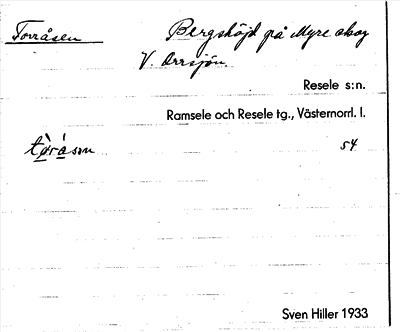 Torråsen Bergshöjd på Myre skog
V. Orrsjön.
Resele s:n.
Ramsele och Resele tg., Västernorrl. l.
54
Sven Hiller 1933